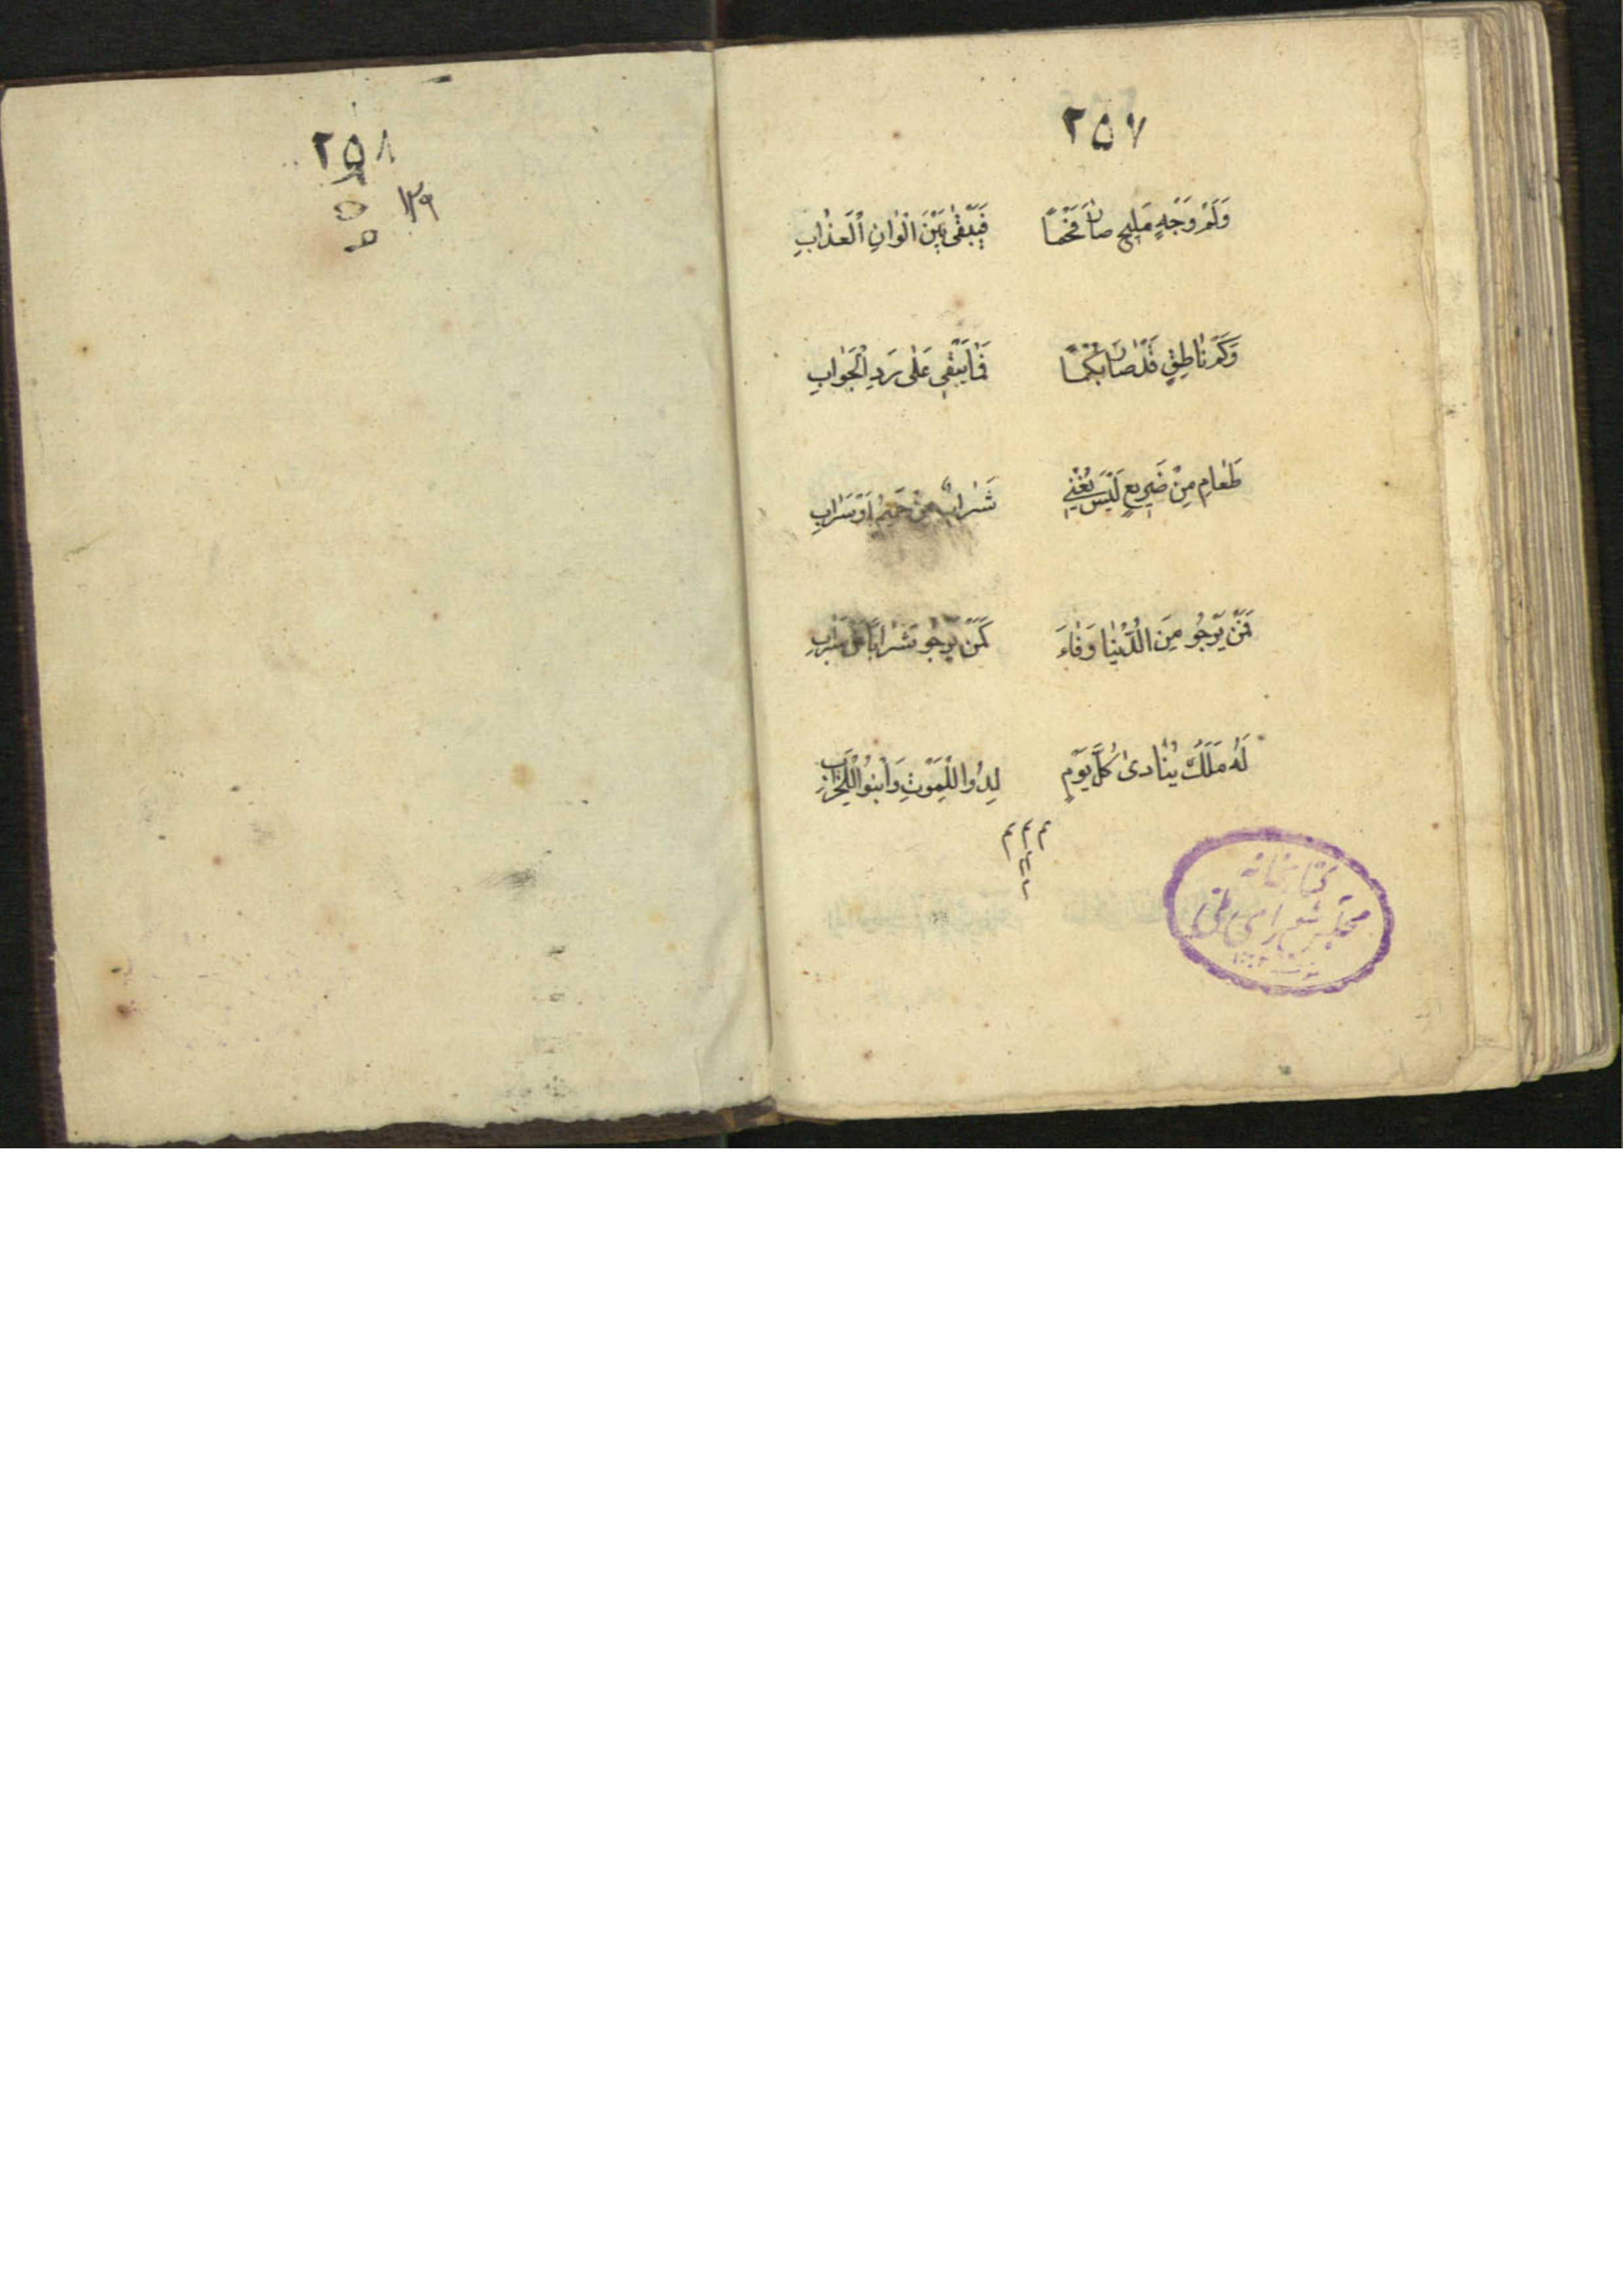 ٢٥٧
وَلَمْ وَجْهٍ مَلِيحٍ صٰانَ فَخْمًا فَيَبْقٰى بَيْنَ اَلْوٰانِ الْعَذٰابِ
وَكَمْ نٰاطِقٍ قَدْ صٰانَ بُكْمًا فَمٰا يَبْقٰى عَلٰى رَدِ الْجَوٰابِ
طَعٰامٍ مِنْ ضَرِيعٍ لَيْسَ يُغْنِي شَرٰابٌ مِنْ حَمِيمٍ اَوْ سَرٰابِ
فَمَنْ يَرْجُو مِنَ الدُّنْيٰا وَفٰاءَ كَمَنْ يَرْجُو شَرٰابًا مِنْ سَرٰابِ
لَهُ مَلَكٌ يُنٰادىٰ كُلَّ يَوْمٍ لِدُوا لِلْمَوْتِ وَابْنُوا لِلْخَرٰابِ
كتابخانه
مجلس شورای ملی
٢٥٨
١٢٩